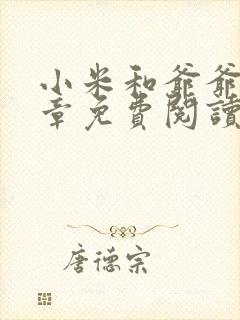 小米和爺爺
章免費閱讀
唐德宗